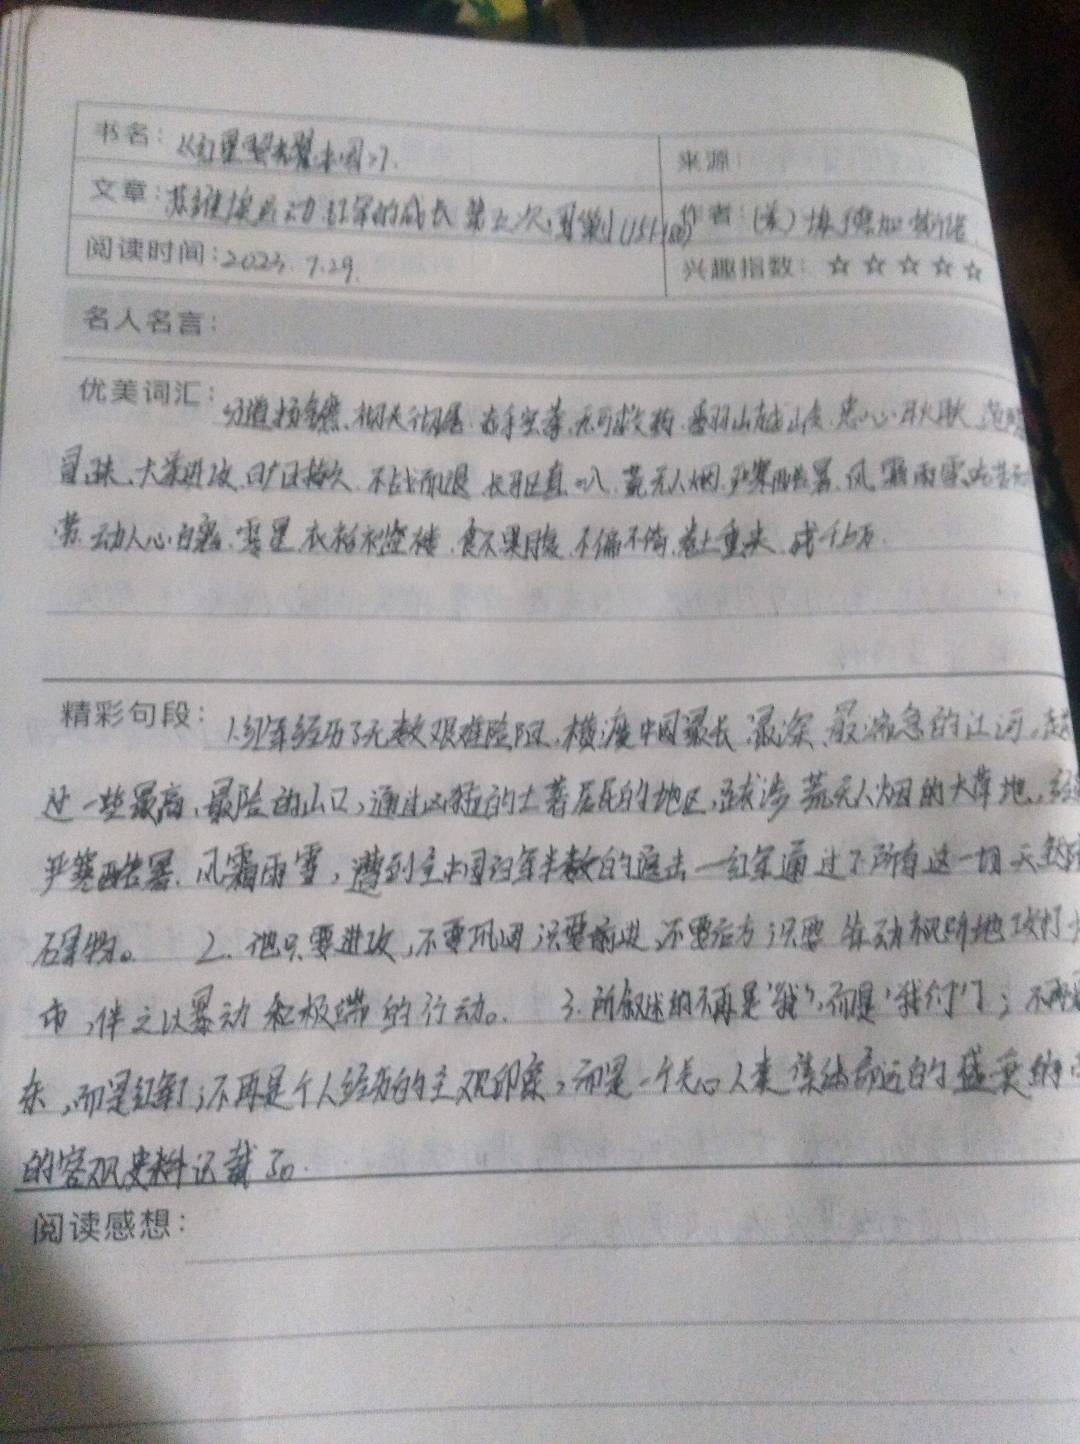 书名：《红星照耀中国》
来源：
文章：苏维埃运动 红军的成长 第五次围剿
作者：(美)埃德加·斯诺
阅读时间：2023.7.29.
兴趣指数：☆☆☆☆☆
名人名言：
优美词汇：分道扬镳、彻头彻尾、赤手空拳、无可救药、翻山越岭、忠心耿耿、
冒昧、大举进攻、旷日持久、不战而退、长驱直入、荒无人烟、严寒酷暑、风霜雨雪、
动人心魄、零星、衣衫褴褛、食不果腹、不偏不倚、卷土重来、成千上万.
精彩句段：1.红军经历了无数艰难险阻，横渡中国最长、最深、最湍急的江河，越
过一些最高、最险的山口，通过凶猛的土著居民的地区，跋涉荒无人烟的大草地，经
严寒酷暑、风霜雨雪，遭到全中国白军半数的追击—红军通过了所有这一切天然障
碍物。 2.他只要进攻，不要巩固，只要前进，不要后方，只要
市，伴之以暴动和极端的行动。 3.所叙述的不再是“我”，而是“我们”；不再
东，而是红军；不再是个人经历的主观印象，而是一个关心人类集体命运的盛衰的
的客观史料记载了。
阅读感想：